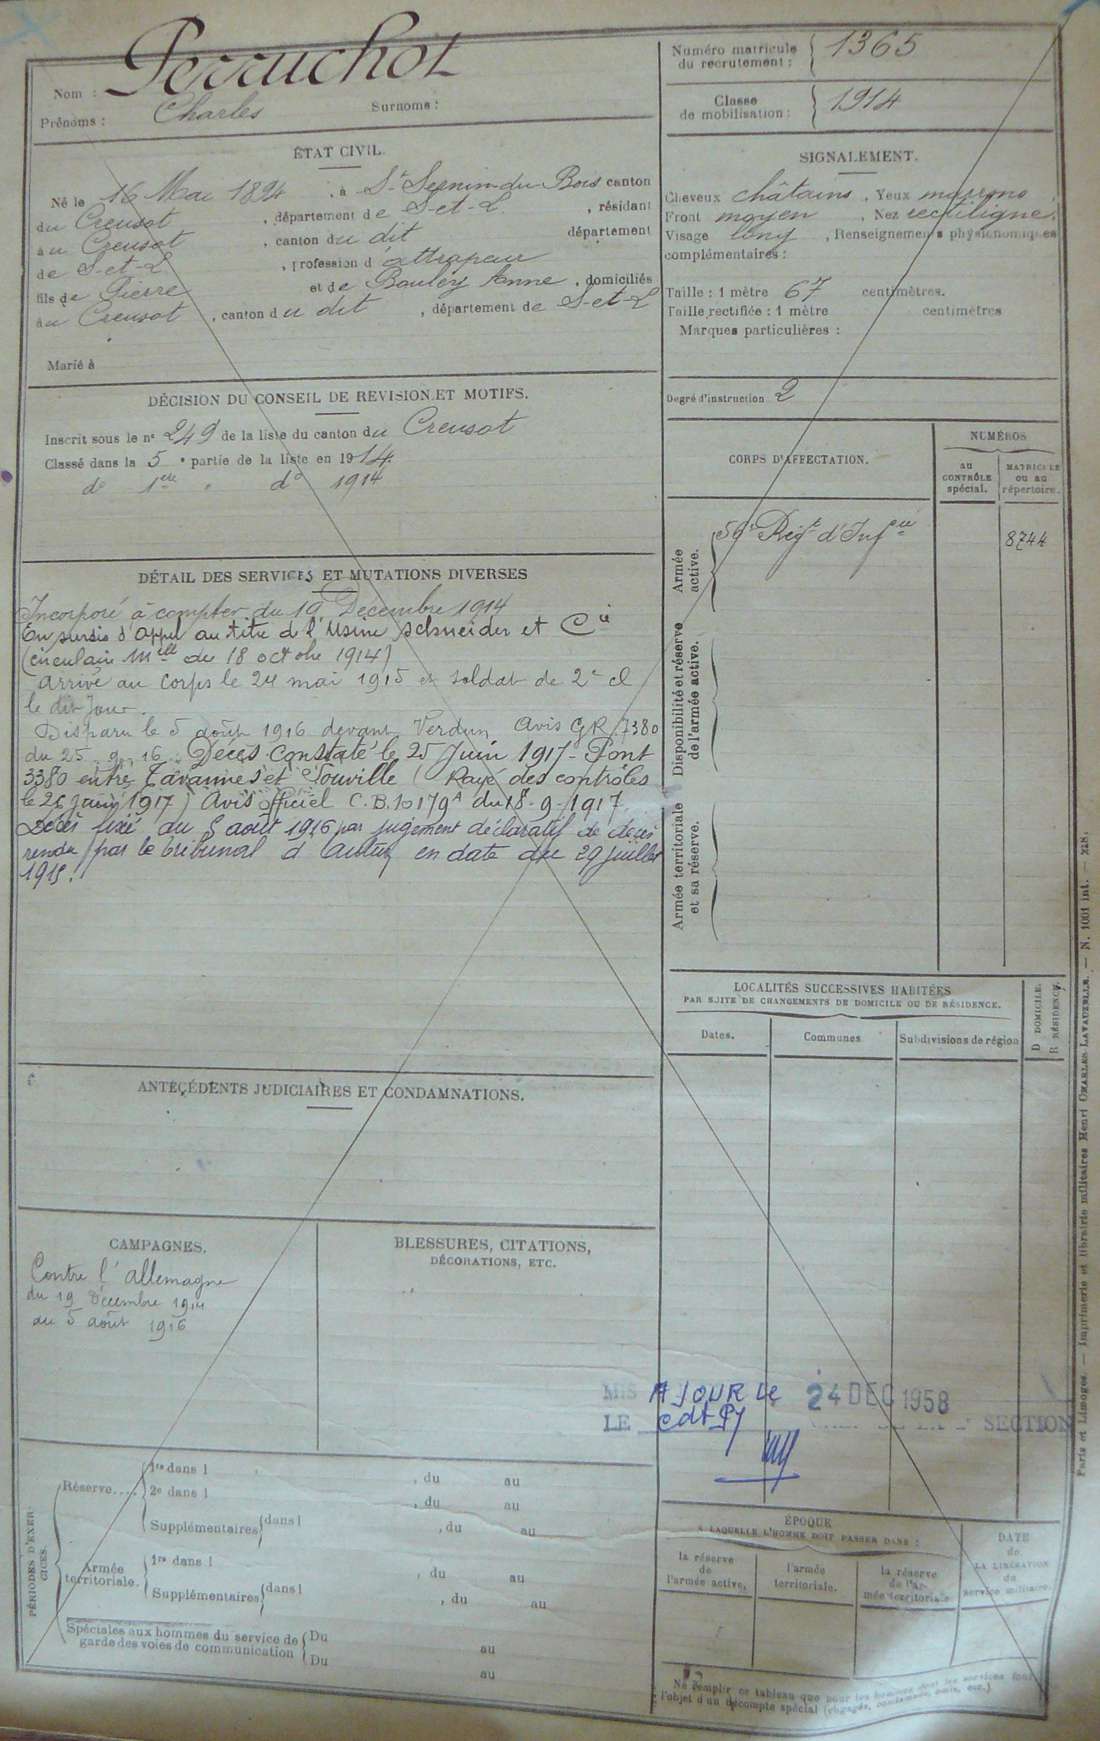 Nom : Perruchot
Prénoms : Charles Surnoms :
Numéro matricule du recrutement : 1365
Classe de mobilisation : 1914
ÉTAT CIVIL.
Né le 16 Mai 1894, à St Sernin-du-Bois canton
du Creusot, département de S-et-L, résidant
au Creusot, canton du dit département
de S-et-L, profession d'attrapeur
fils de Pierre et de Bouley Anne, domiciliés
au Creusot, canton du dit, département de S-et-L
Marié à
SIGNALEMENT.
Cheveux châtains. Yeux marrons
Front moyen, Nez rectiligne.
Visage long, Renseignements physionomiques
complémentaires :
Taille : 1 mètre 67 centimètres.
Taille rectifiée : 1 mètre centimètres
Marques particulières :
Degré d'instruction 2
DÉCISION DU CONSEIL DE REVISION ET MOTIFS.
Inscrit sous le n° 249 de la liste du canton du Creusot
Classé dans la 5e partie de la liste en 1914.
do 1ère " do 1914
CORPS D'AFFECTATION.
NUMÉROS
AU CONTRÔLE spécial.
MATRICULE ou au répertoire.
Armée active.
56e Regt d'Infie 8744
Disponibilité et réserve de l'armée active.
Armée territoriale et sa réserve.
DÉTAIL DES SERVICES ET MUTATIONS DIVERSES
Incorporé à compter du 19 Décembre 1914
En sursis d'appel au titre de l'Usine Schneider et Cie
(circulaire Mlle du 18 octobre 1914)
arrivé au corps le 24 mai 1915 et soldat de 2e cl
le dit jour.
Disparu le 5 août 1916 devant Verdun Avis GR 7380
du 25. 9. 16. Décès constaté le 25 Juin 1917 - Point
3380 entre Tavannes et Souville (Rayé des contrôles
le 26 juin 1917) Avis officiel C.B. 10179A du 18-9-1917
Décès fixé au 5 août 1916 par jugement déclaratif de décès
rendu par le tribunal d'Autun en date du 29 juillet
LOCALITÉS SUCCESSIVES HABITÉES
PAR SUITE DE CHANGEMENTS DE DOMICILE OU DE RÉSIDENCE.
Dates. Communes Subdivisions de région
D DOMICILE.
R RÉSIDENCE.
ANTÉCÉDENTS JUDICIAIRES ET CONDAMNATIONS.
CAMPAGNES.
Contre l'allemagne
du 19 Décembre 1914
au 5 août 1916
BLESSURES, CITATIONS,
DÉCORATIONS, ETC.
MIS A JOUR le 24 DEC 1958
LE SECTION
PÉRIODES D'EXERCICES.
Réserve....
1re dans l , du au
2e dans l , du au
Supplémentaires dans l , du au
Armée territoriale.
1re dans l , du au
Supplémentaires dans l , du au
Spéciales aux hommes du service de
garde des voies de communication
Du au
Du au
ÉPOQUE
A LAQUELLE L'HOMME DOIT PASSER DANS :
la réserve de l'armée active.
l'armée territoriale.
la réserve de l'armée territoriale
DATE de LA LIBÉRATION du service militaire.
Ne remplir ce tableau que pour les hommes dont les services font
l'objet d'un décompte spécial (engagés, condamnés, omis, etc.)
Paris et Limoges. — Imprimerie et librairie militaires Henri CHARLES-LAVAUZELLE. — N. 1001 int. —